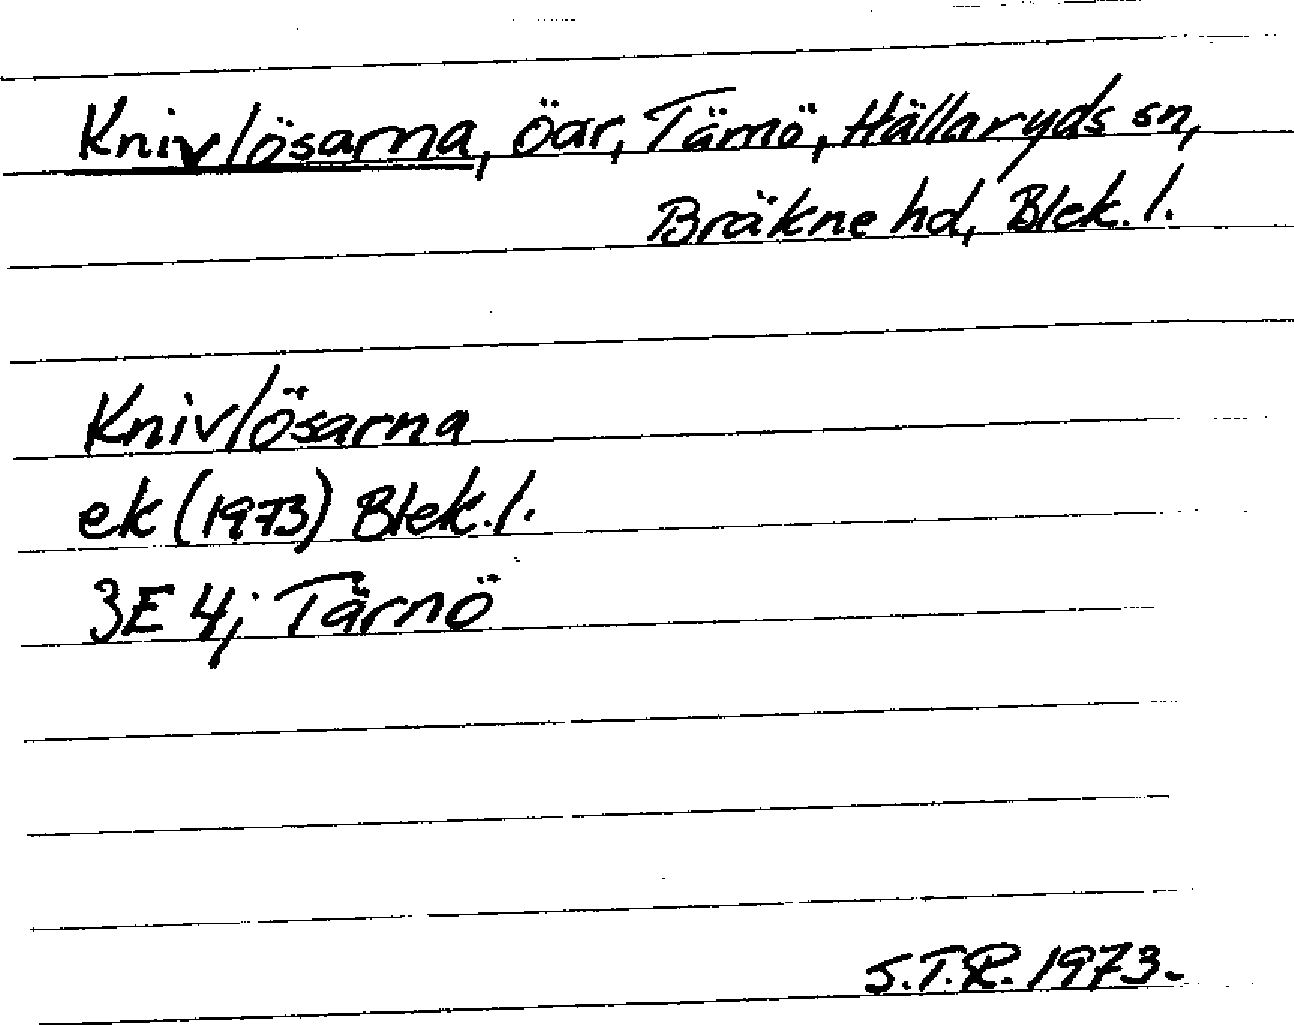 Knivlösarna, öar, Tärnö, Hällaryds sn,
Bräkne hd, Blek. l.
Knivlösarna
ek (1973) Blek. l.
3E 4j Tärnö
S.T.R. 1973.